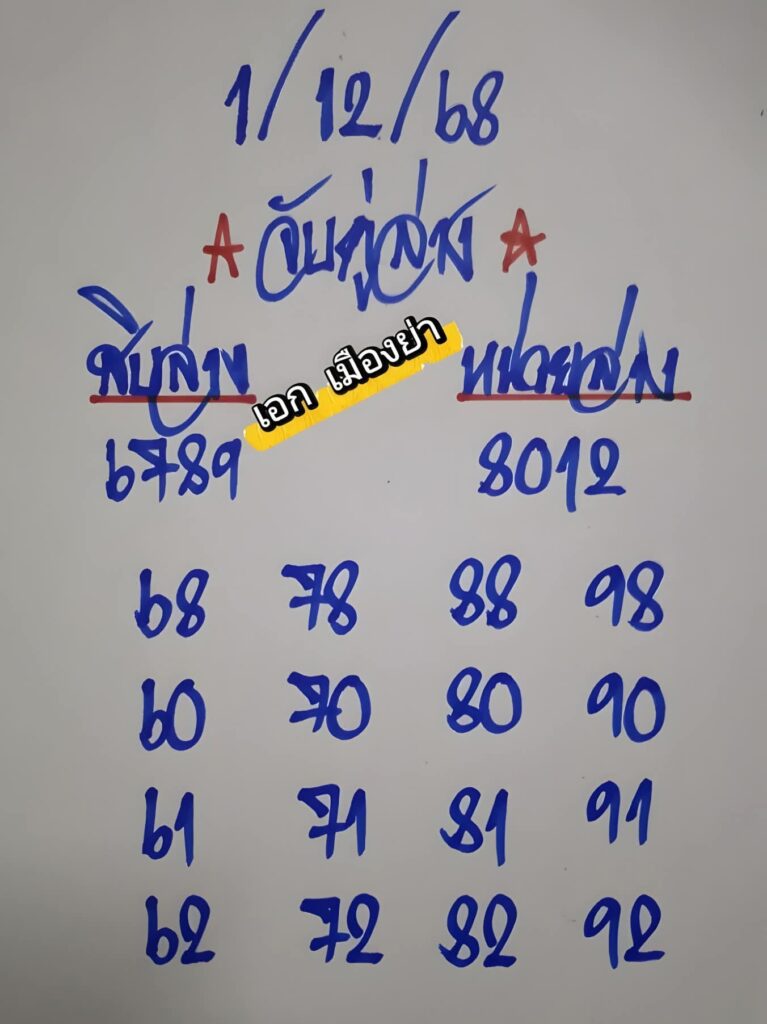 1/12/68
จับคู่ล่าง
สิบล่าง
เอก เมืองย่า
หน่วยล่าง
6789
8012
68 78 88 98
60 70 80 90
61 71 81 91
62 72 82 92